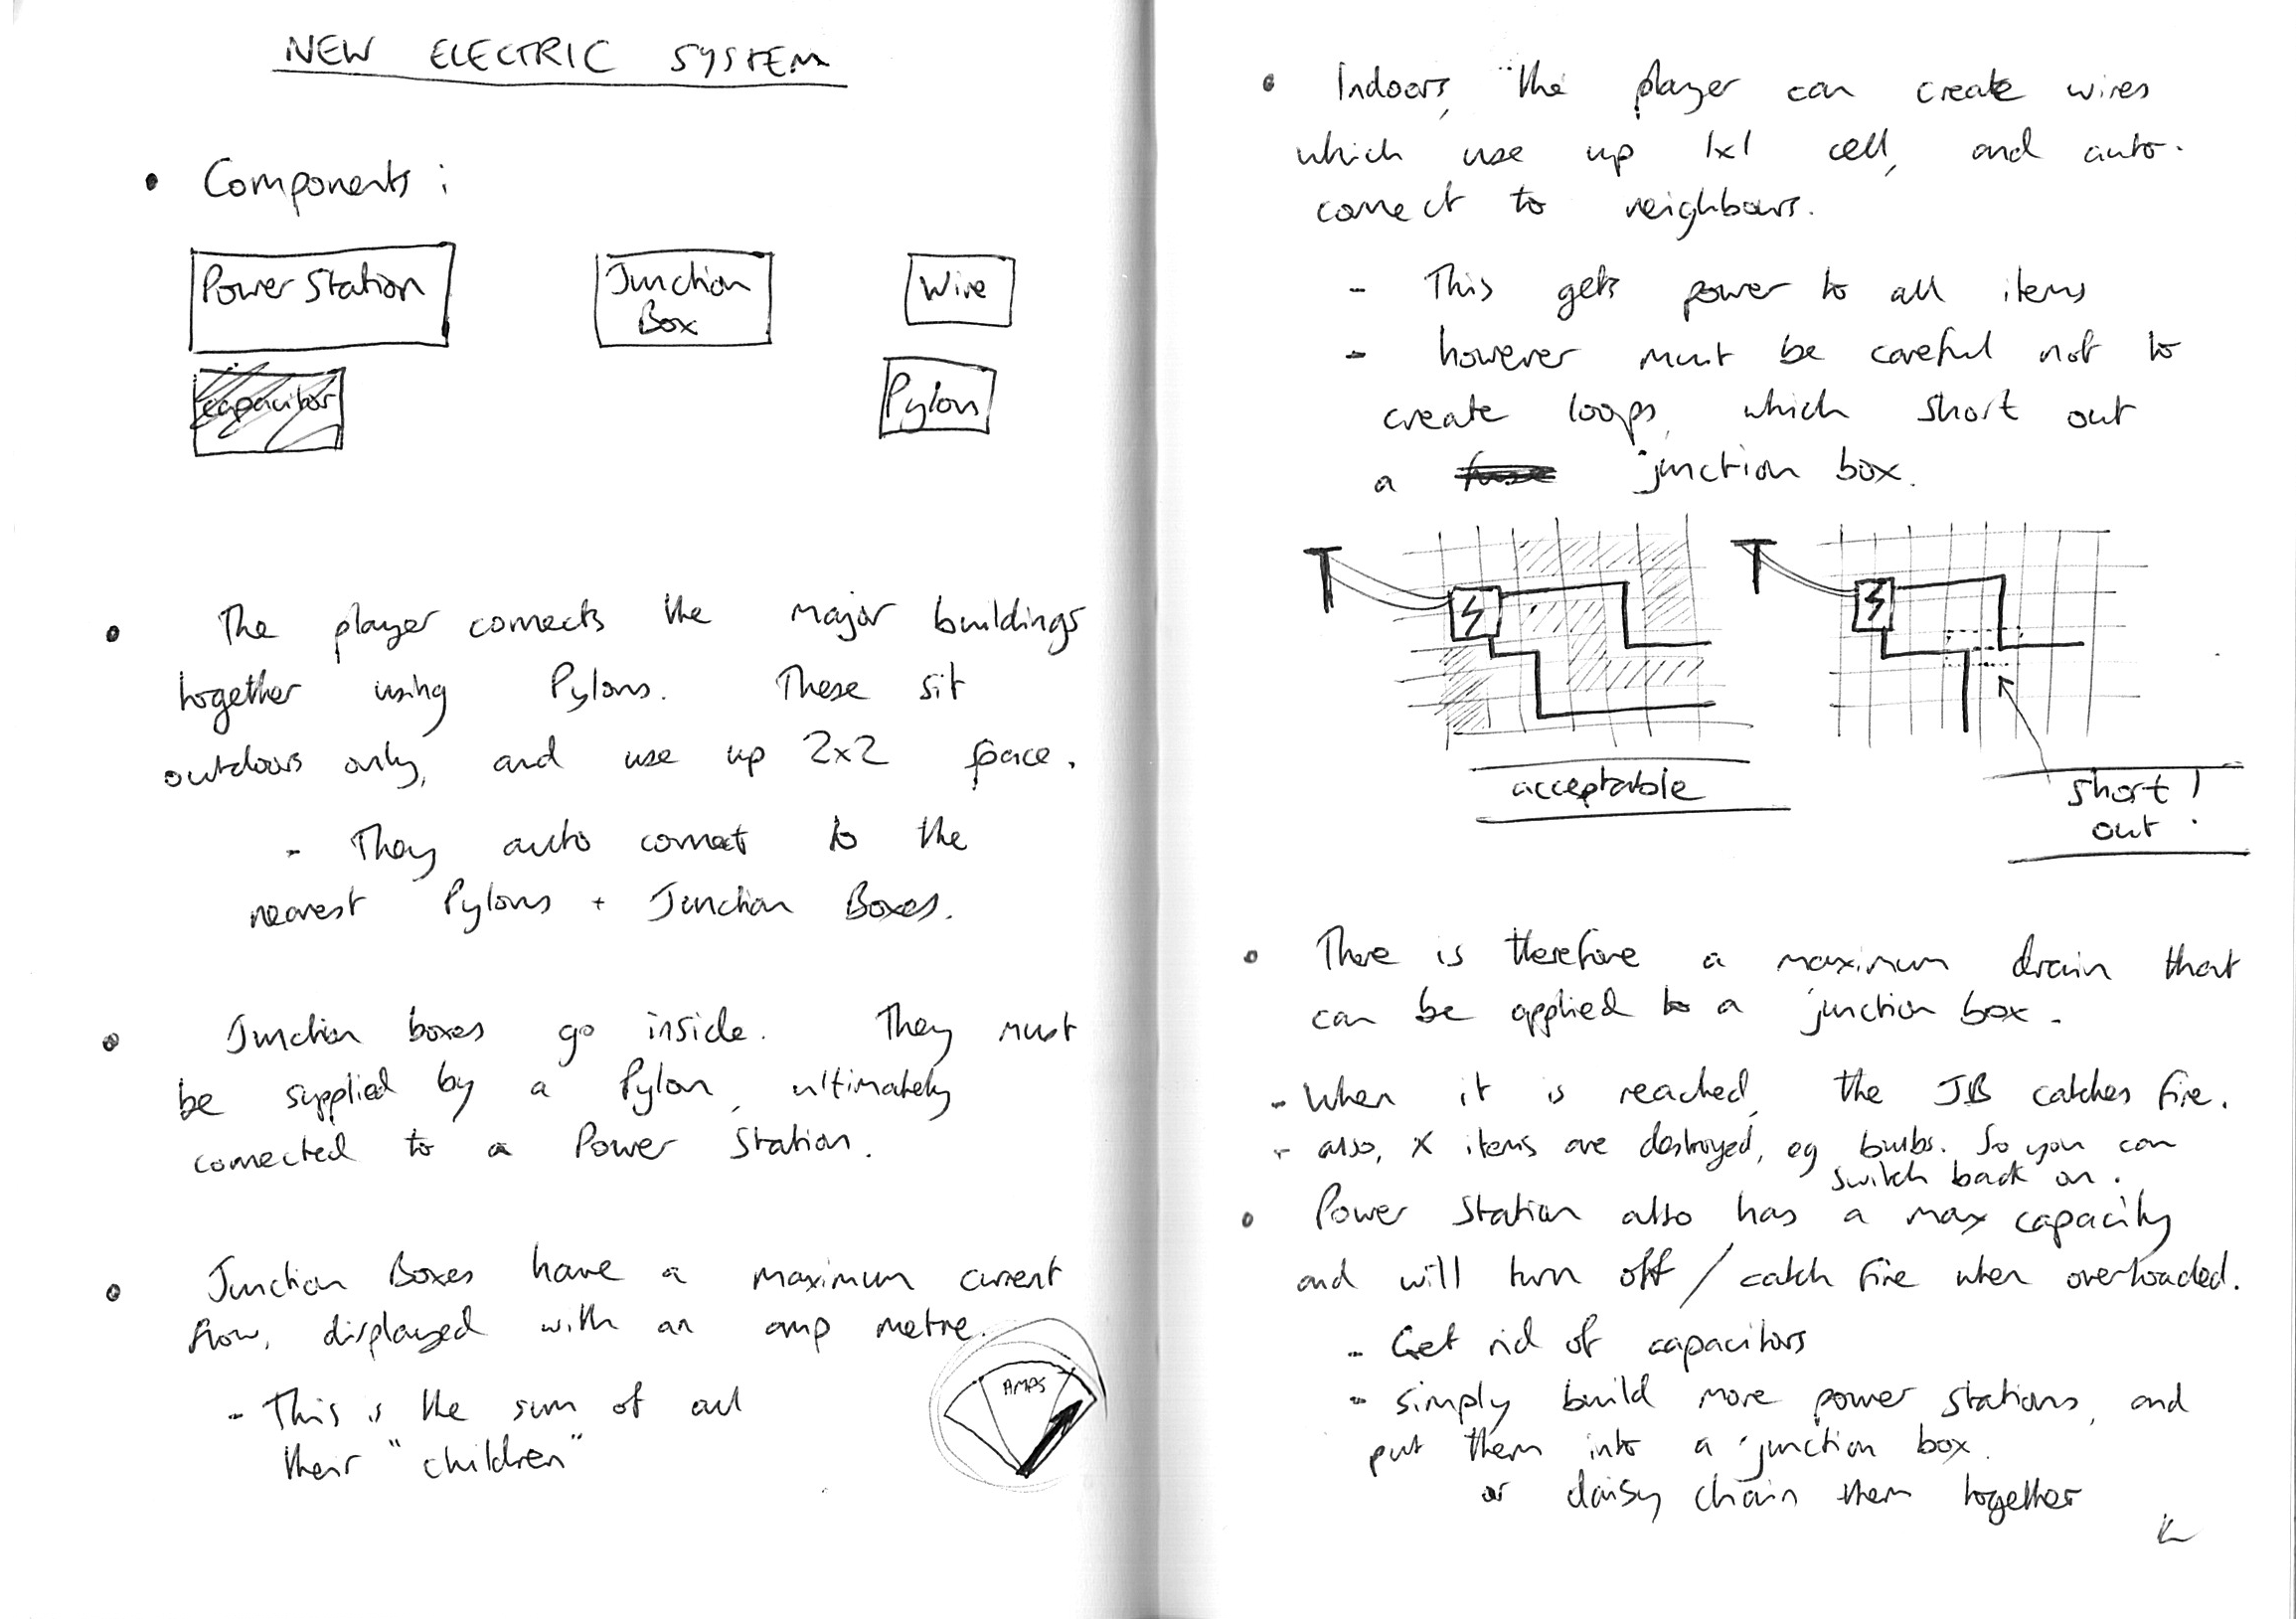 NEW ELECTRIC SYSTEM
• Components :
Power Station
Junction
Box
Wire
capacitor
Pylon
• The player connects the major buildings
together using Pylons. These sit
outdoors only, and use up 2x2 space.
- They auto connect to the
nearest Pylons + Junction Boxes.
• Junction boxes go inside. They must
be supplied by a Pylon, ultimately
connected to a Power Station.
• Junction Boxes have a maximum current
flow, displayed with an amp metre.
- This is the sum of all
their "children"
AMPS
• Indoors, the player can create wires
which use up 1x1 cell, and auto-
connect to neighbours.
- This gets power to all items
- however must be careful not to
create loops, which short out
a fuse junction box.
acceptable
short !
out
• There is therefore a maximum drain that
can be applied to a junction box.
- When it is reached, the JB catches fire.
- also, X items are destroyed, eg bulbs. So you can
switch back on.
• Power Station also has a max capacity
and will turn off / catch fire when overloaded.
- Get rid of capacitors
- simply build more power stations, and
put them into a junction box.
or daisy chain them together